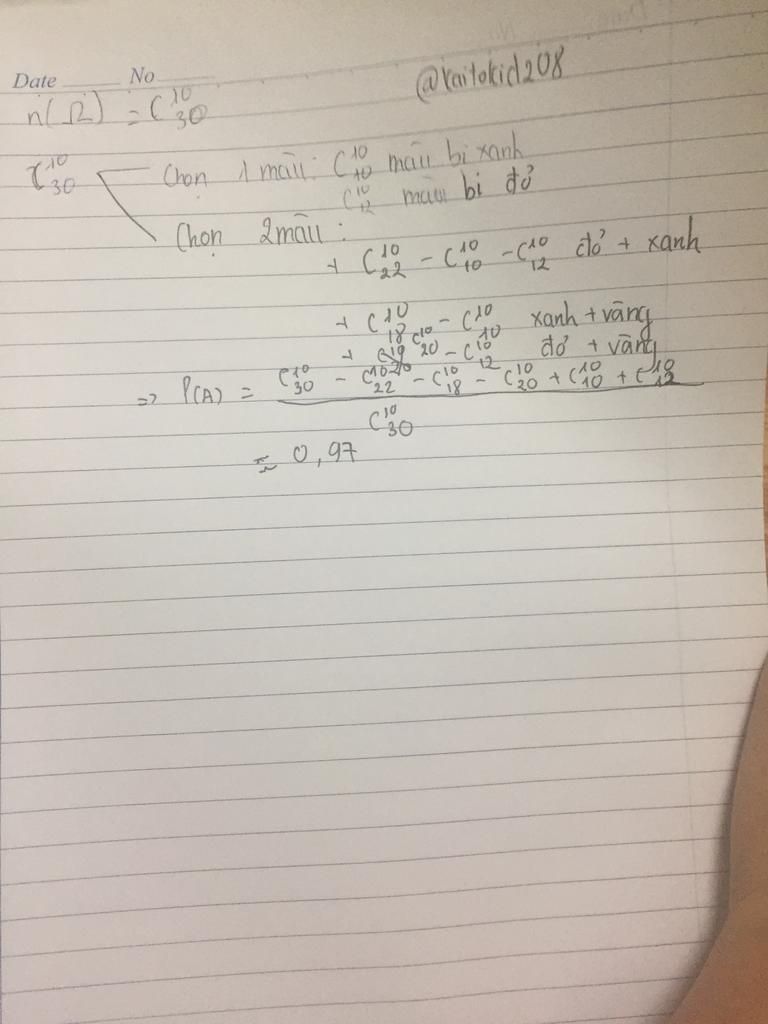 Date No
@kaitokid208
n(Ω) = C¹⁰₃₀
C¹⁰₃₀ Chọn 1 màu: C¹⁰₁₀ màu bi xanh
C¹⁰₁₂ màu bi đỏ
Chọn 2 màu:
+ C¹⁰₂₂ - C¹⁰₁₀ - C¹⁰₁₂ đỏ + xanh
+ C¹⁰₁₈ - C¹⁰₁₀ xanh + vàng
+ C¹⁰₂₀ - C¹⁰₁₂ đỏ + vàng
=> P(A) = C¹⁰₃₀ - C¹⁰₂₂ - C¹⁰₁₈ - C¹⁰₂₀ + C¹⁰₁₀ + C¹⁰₁₂
C¹⁰₃₀
≈ 0,97